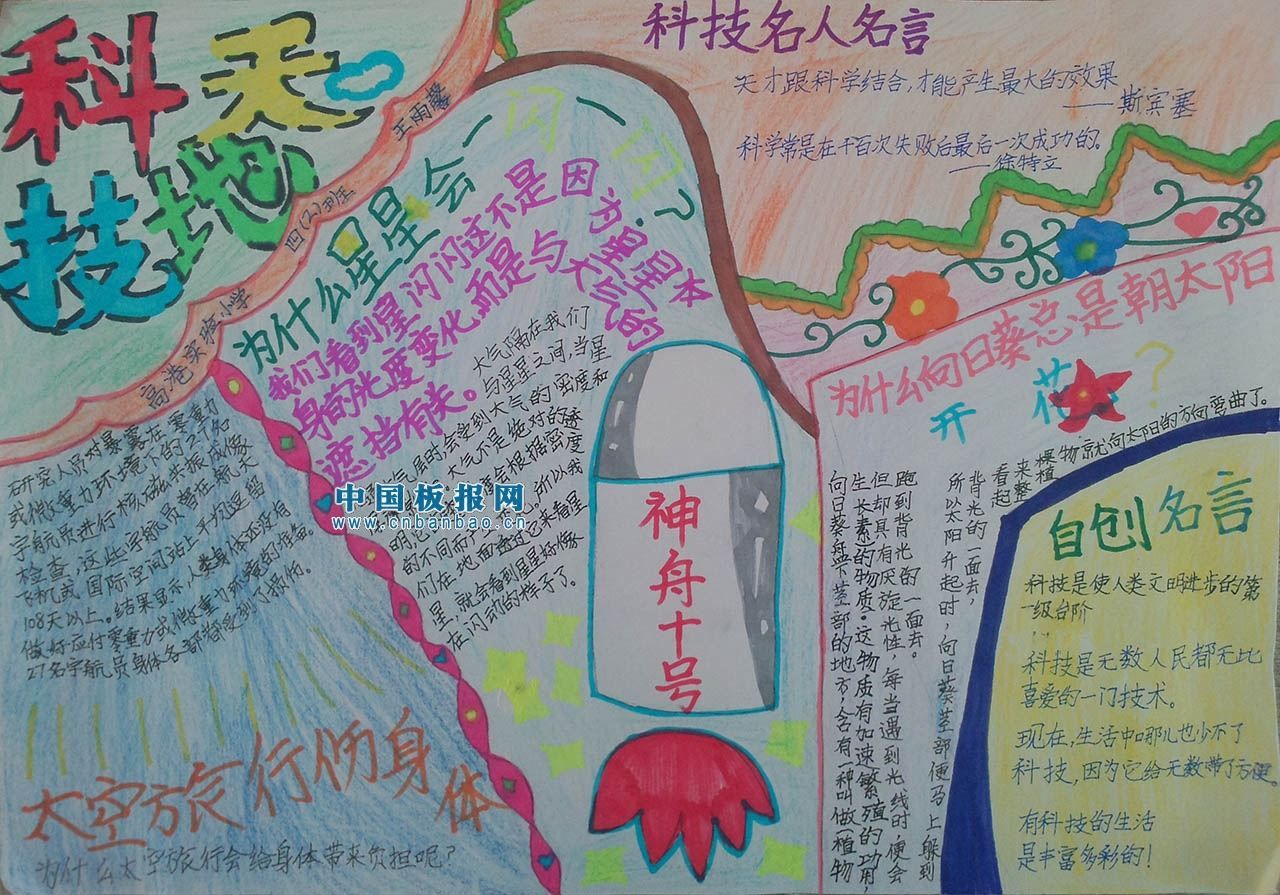 科技
天地
高港实验小学
四(2)班
王雨馨
科技名人名言
天才跟科学结合,才能产生最大的效果
——斯宾塞
科学常是在千百次失败后最后一次成功的。
——徐特立
为什么星星会一闪一闪?
我们看到星闪闪这不是因为星星本
身的光度变化,而是与大气的
遮挡有关。
大气隔在我们
与星星之间,当星
气层时会受到大气的密度和
大气不是绝对的透
明,它 会根据密度
的不同而产生 所以我
们在地面透过它来看星
星,就会看到星星好像
在闪动的样子了。
中国板报网
www.cnbanbao.cn
神舟十号
研究人员对暴露在零重力
或微重力环境下的27名
宇航员进行核磁共振成像
检查,这些宇航员曾在航天
飞机或国际空间站上平均逗留
108天以上。结果显示,人类身体还没有
做好应付零重力或微重力环境的准备。
27名宇航员身体各部都受到了损伤。
太空旅行伤身体
为什么太空旅行会给身体带来负担呢?
为什么向日葵总是朝太阳
开花?
向日葵盘下茎部的地方,含有一种叫做“植物
生长素”的物质。这物质有加速繁殖的功用,
但却具有厌旋光性,每当遇到光线时,便会
跑到背光的一面去。
所以太阳升起时,向日葵茎部便马上躲到
背光的一面去,
看起
来整
棵植
物就向太阳的方向弯曲了。
自创名言
科技是使人类文明进步的第
一级台阶
科技是无数人民都无比
喜爱的一门技术。
现在,生活中哪儿也少不了
科技,因为它给无数带了方便。
有科技的生活
是丰富多彩的!